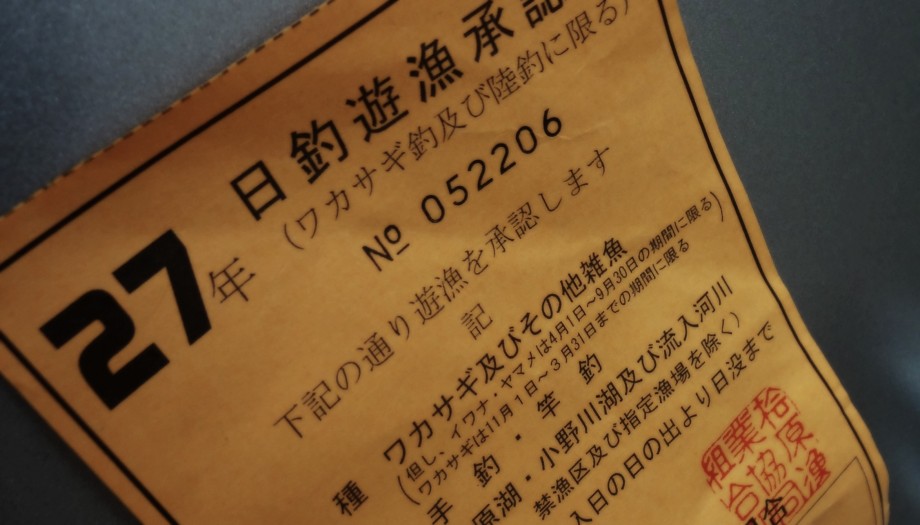 日釣遊漁承認
(ワカサギ釣及び陸釣に限る)
27年
№ 052206
下記の通り遊漁を承認します
記
種 ワカサギ及びその他雑魚
(但し、イワナ・ヤマメは4月1日～9月30日の期間に限る)
ワカサギは11月1日～3月31日までの期間に限る
手釣・竿釣
原湖・小野川湖及び流入河川
禁漁区及び指定漁場を除く)
入日の日の出より日没まで
桧原漁
業協同
組合